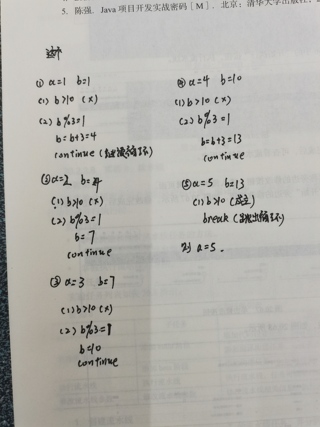 5. 陈强. Java 项目开发实战密码［M］. 北京：清华大学出版社，
① a=1 b=1
(1) b>10 (×)
(2) b%3=1
b=b+3=4
continue
② a=2 b=4
(1) b>10 (×)
(2) b%3=1
b=7
continue
③ a=3 b=7
(1) b>10 (×)
(2) b%3=1
b=10
continue
④ a=4 b=10
(1) b>10 (×)
(2) b%3=1
b=b+3=13
continue
⑤ a=5 b=13
(1) b>10 (成立)
break (跳出循环)
a=5.